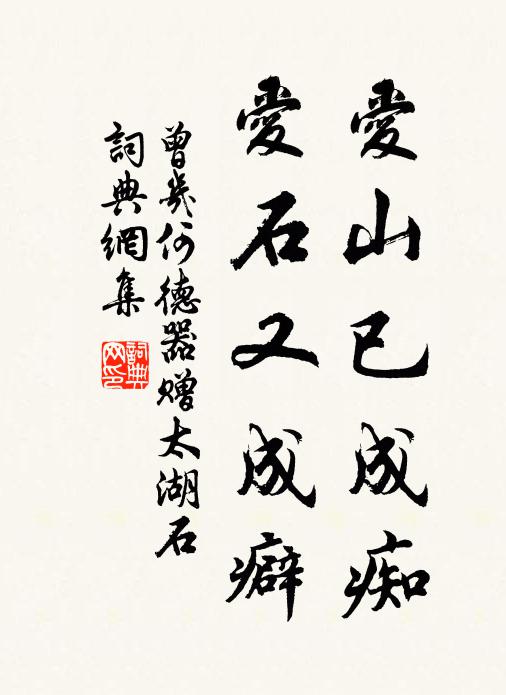 愛山已成痴
愛石又成癖
曾幾何德器贈太湖石
詞典網集
詞典網印